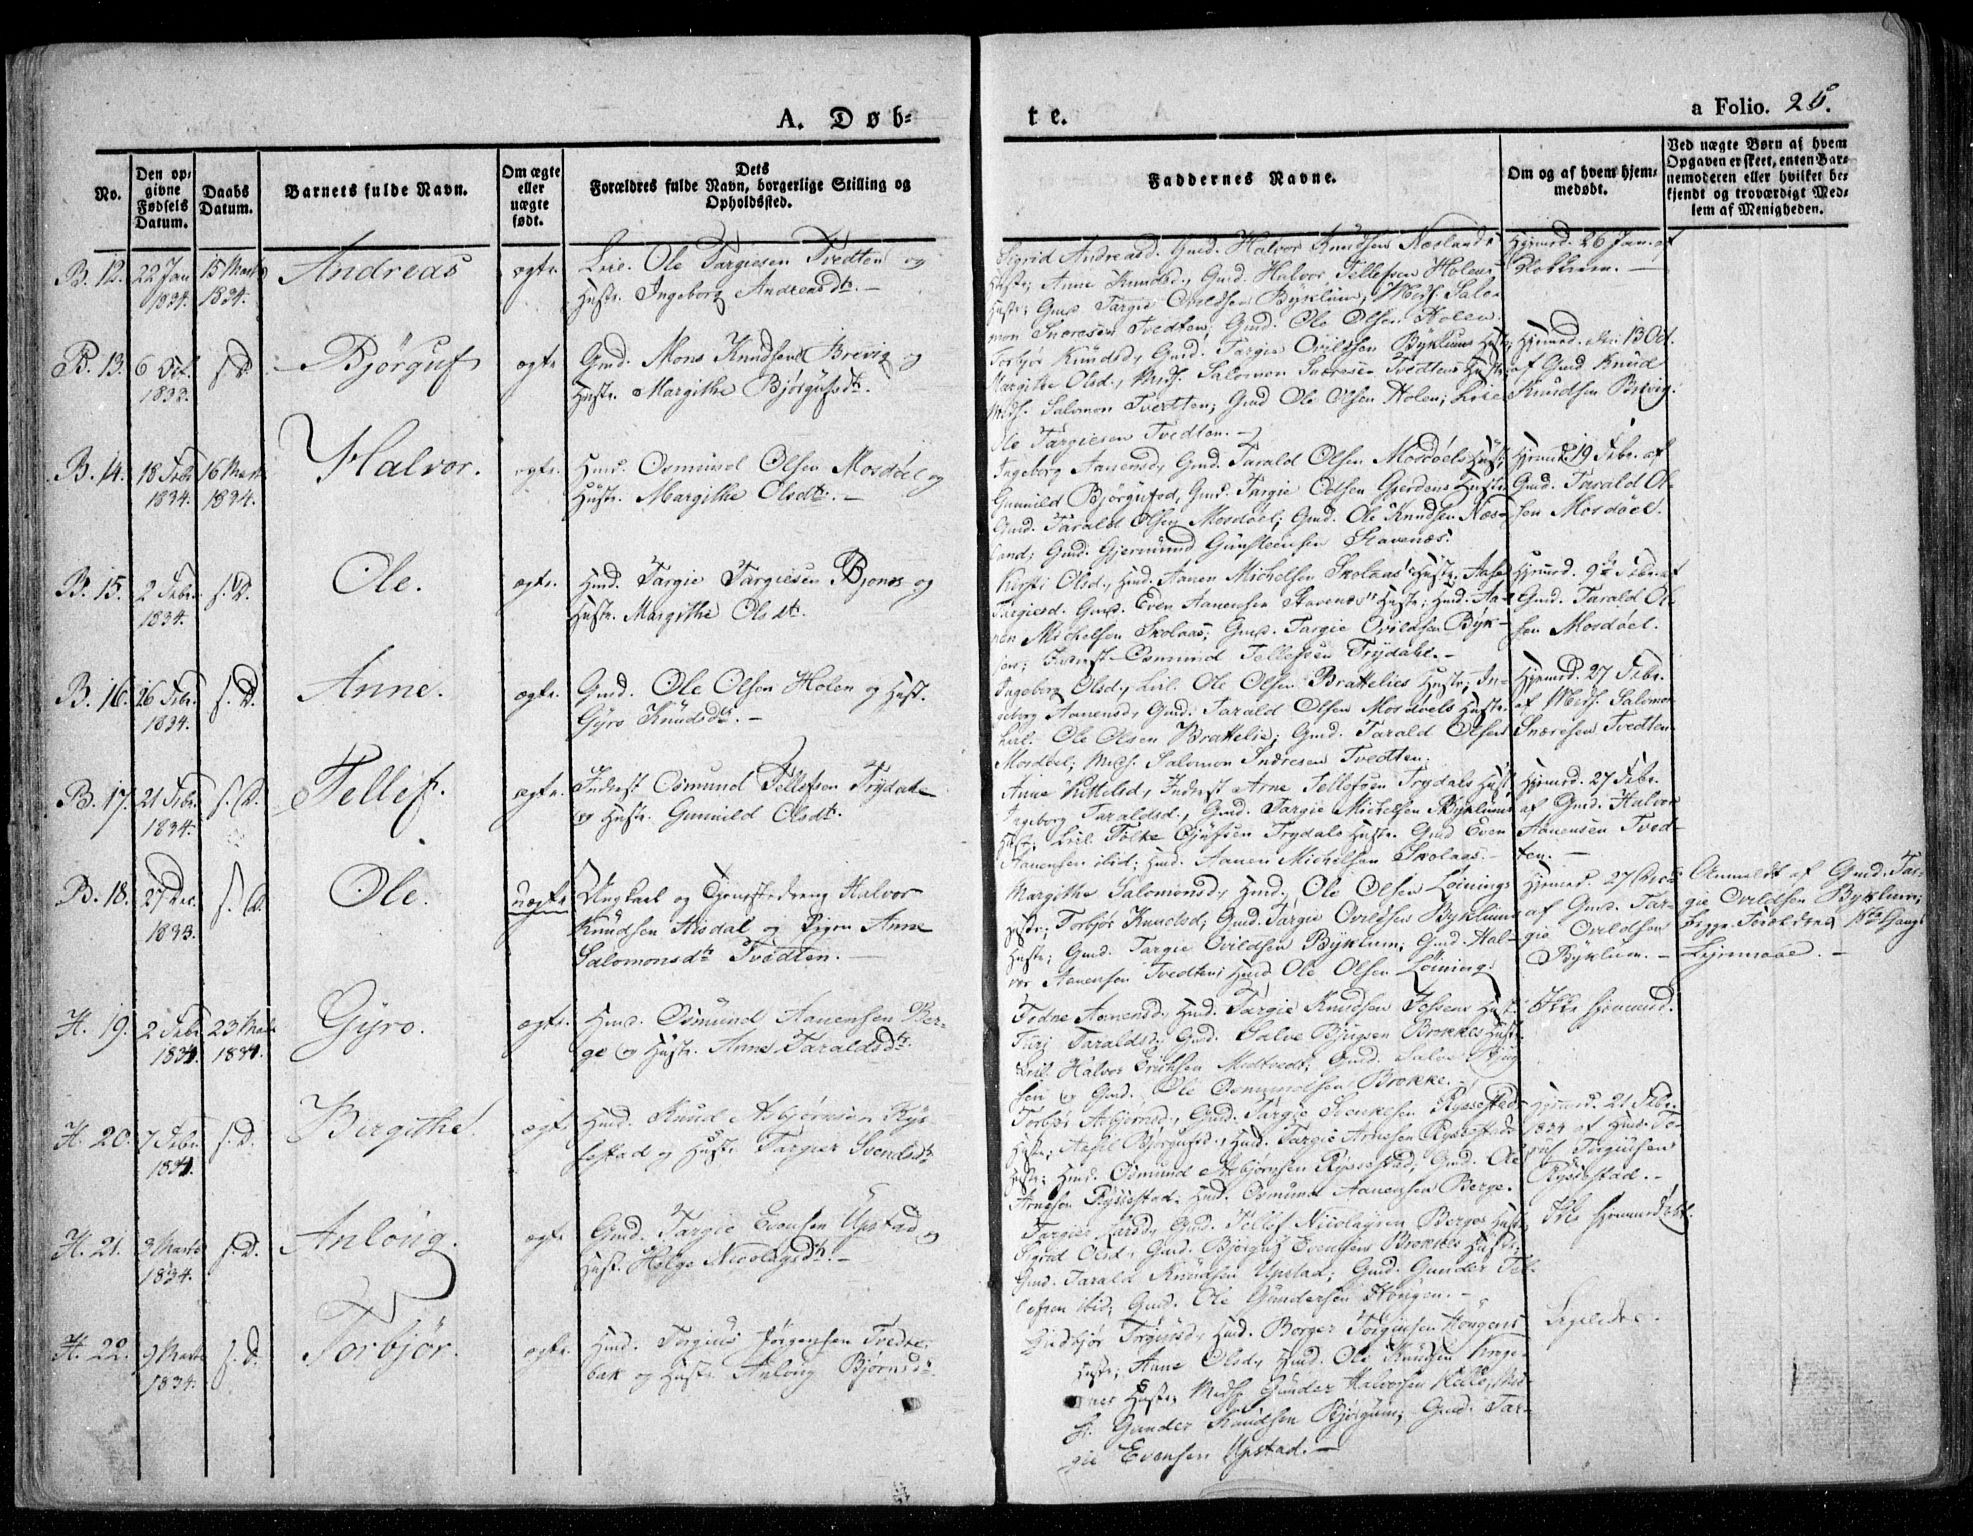 A. Døb=
te.
a Folio. 25.
No.
Den op=
givne
Fødsels
Datum.
Daabs
Datum.
Barnets fulde Navn.
Om ægte
eller
uægte
født.
Dets
Forældres fulde Navn, borgerlige Stilling og
Opholdssted.
Faddernes Navne.
Om og af hvem hjem=
medøbt.
Ved uægte Børn af hvem
Opgaven er skeet, enten Bar=
nemoderen eller hvilket be=
kjendt og troværdigt Med=
lem af Menigheden.
B. 12. 22 Jan 15 Marts Andreas ægte. Leil. Ole Targiesen Tvedten og
1834. 1834. Hustr. Ingeborg Andreasdtr. —
Sigrid Andreasd. Gmd. Halvor Knudsen Næslands
Hustr; Anne Knudsd., Gmd. Halvor Tellefsen Holens
Hustr; Gmd Targie Ovildsen Byklum; Salo=
mon Tvedten; Gmd. Ole Olsen Holen.
Hjemd. 26 Jan. af
B. 13. 6 s. D. Bjørguf ægte Gmd. Mons Knudsen Brevig og
Hustr. Margithe Bjørgufsdtr. —
Torbjør Knudsd., Gmd. Targie Ovildsen Byklums Hustr;
Margithe Olsd., Salomon Tvedtens Hustr;
Salomon Tvedten; Gmd Ole Olsen Holen; Leil
Ole Targiesen Tvedten. —
Hjemd. den 13 Oct.
af Gmd Knud
Knudsen Brevig.
B. 14. 18 Febr 16 Marts Halvor. ægte. Hmd. Osmund Olsen Mosdøel og
1834. 1834. Hustr. Margithe Olsdtr. —
Ingeborg Aanensd., Gmd. Tarald Olsen Mosdøels Hustr;
Gunnild Bjørgufsd., Gmd. Targie Olsen Gjerdens Hustr.
Gmd. Tarald Olsen Mosdøel; Gmd. Ole Knudsen Næs=
land; Gmd. Gjermund Gunsteensen Stavenæs.
Hjemd 19 Febr. af
Gmd. Tarald Ol=
sen Mosdøel.
B. 15. 2 Febr. s. D. Ole. ægte. Hmd. Targie Targiesen Bjones og
1834. Hustr. Margithe Olsdtr.
Kirsti Olsd., Hmd. Aanen Michelsen Skolaas Hustr; Aase
Targiesd. Gmd. Even Aanensen Stavenes Hustr; Hmd. Aa=
nen Michelsen Skolaas; Gmd. Targie Ovildsen Byk=
lum; Inderst Osmund Tellefsen Trydahl. —
Hjemd. 9de Febr. af
Gmd. Tarald Ol=
sen Mosdøel.
B. 16. 26 Febr. s. D. Anne. ægte. Gmd. Ole Olsen Holen og Hust.
1834. Gyro Knudsdtr. —
Ingeborg Olsd., Leil. Ole Olsen Brattelies Hustr; In=
geborg Aanensd., Gmd. Tarald Olsen Mosdøels Hustr.
Leil. Ole Olsen Brattelie; Gmd. Tarald Olsen
Mosdøel; Salomon Tvedten.
Hjemd. 27 Febr.
af Salomon
Tvedten
B. 17. 21 Febr. s. D. Tellef. ægte. Inderst Osmund Tellefsen Trydale
1834. og Hustr. Gunnild Olsdtr.
Anne Kittelsd., Inderst Arne Tellefsen Trydals Hustr
Ingeborg Taraldsd., Gmd. Targie Michelsen Byklums
Hustr; Leil. Folke Trydals Hustr. Gmd Even
Aanensen ibid; Hmd. Aanen Michelsen Skolaas. —
Hjemd. 27 Febr.
af Gmd. Halvor
Aanensen Tved=
ten. —
B. 18. 27 Dec. s. D. Ole. uægte. Ungkarl og Tjenestedreng Halvor
1833. Knudsen Aasdal og Pigen Anne
Salomonsdtr Tvedten. —
Margithe Salomonsd., Hmd. Ole Olsen Løinings
Hustr; Torbjør Knudsd., Gmd. Targie Ovildsen Byklums
Hustr; Gmd. Targie Ovildsen Byklum; Gmd. Hal=
vor Aanensen Tvedten; Hmd Ole Olsen Løining.
Hjemd. 27 Dec.
af Gmd. Tar=
gie Ovildsen
Byklum. —
Anmeldt af Gmd. Tar=
gie Ovildsen Byklum;
begge Forældres 1ste Gangs
Leiermaal. —
H. 19. 2 Febr. 23 Marts Gyro. ægte. Hmd. Osmund Aanensen Ber=
1834. 1834. ge og Hustr. Anne Taraldsdtr.
Aanensd., Hmd. Targie Knudsen Hust.
Turj Taraldsd., Gmd. Salve Bjugsen Brokkes Hustr
Leil. Halvor Erichsen; Gmd. Salve Bjug
sen og Gmd. Ole Osmundsen Brokke. —
Ikke hjemmed.
H. 20. 7 Febr. s. D. Birgithe. ægt. Hmd. Knud Asbjørnsen Rys=
1834. sestad og Hustr Targier Svendsdtr
Torbjør Asbjørnsd., Gmd. Targie Svenkesen Ryssestads
Hustr; Aasil Bjørgufsd., Hmd. Targie Arnesen Ryssestads
Hustr; Hmd. Osmund Asbjørnsen Ryssestad; Gmd. Ole
Arnesen Ryssestad. Hmd. Osmund Aanensen Berge.
Hjemd. 21 Febr.
1834 af Hmd. To=
Torgiusen
Ryssestad. —
H. 21. 3 Marts s. D. Anlong. ægt. Gmd. Targie Evensen Upstad og
1834. Hust. Helge Nicolaysdtr. —
Targier Larsd., Gmd. Tellef Nicolaysen Berges Hustr
Sigrid Olsd., Gmd. Bjørguf Evensens Brokkes Hustr;
Gmd. Tarald Knudsen Upstad; Gmd. Gunder Tel=
lefsen ibid; Gmd. Ole Gundersen Hongen. —
Ikke hjemmedøbt.
H. 22. 9 Marts s. D. Torbjør. ægte. Hmd. Torgius Jørgensen Tvedte=
1834. bak og Hustr Anlong Bjørnsdtr
Gudbjør Torgiusd., Hmd. Borger Torgiusen Hongens
Hustr; Anne Olsd., Hmd. Ole Knudsen
Hustr; Gunder Halvorsen
Gunder Knudsen Bjørgum; Gmd. Tar=
gie Evensen Upstad. —
Ligeledes.